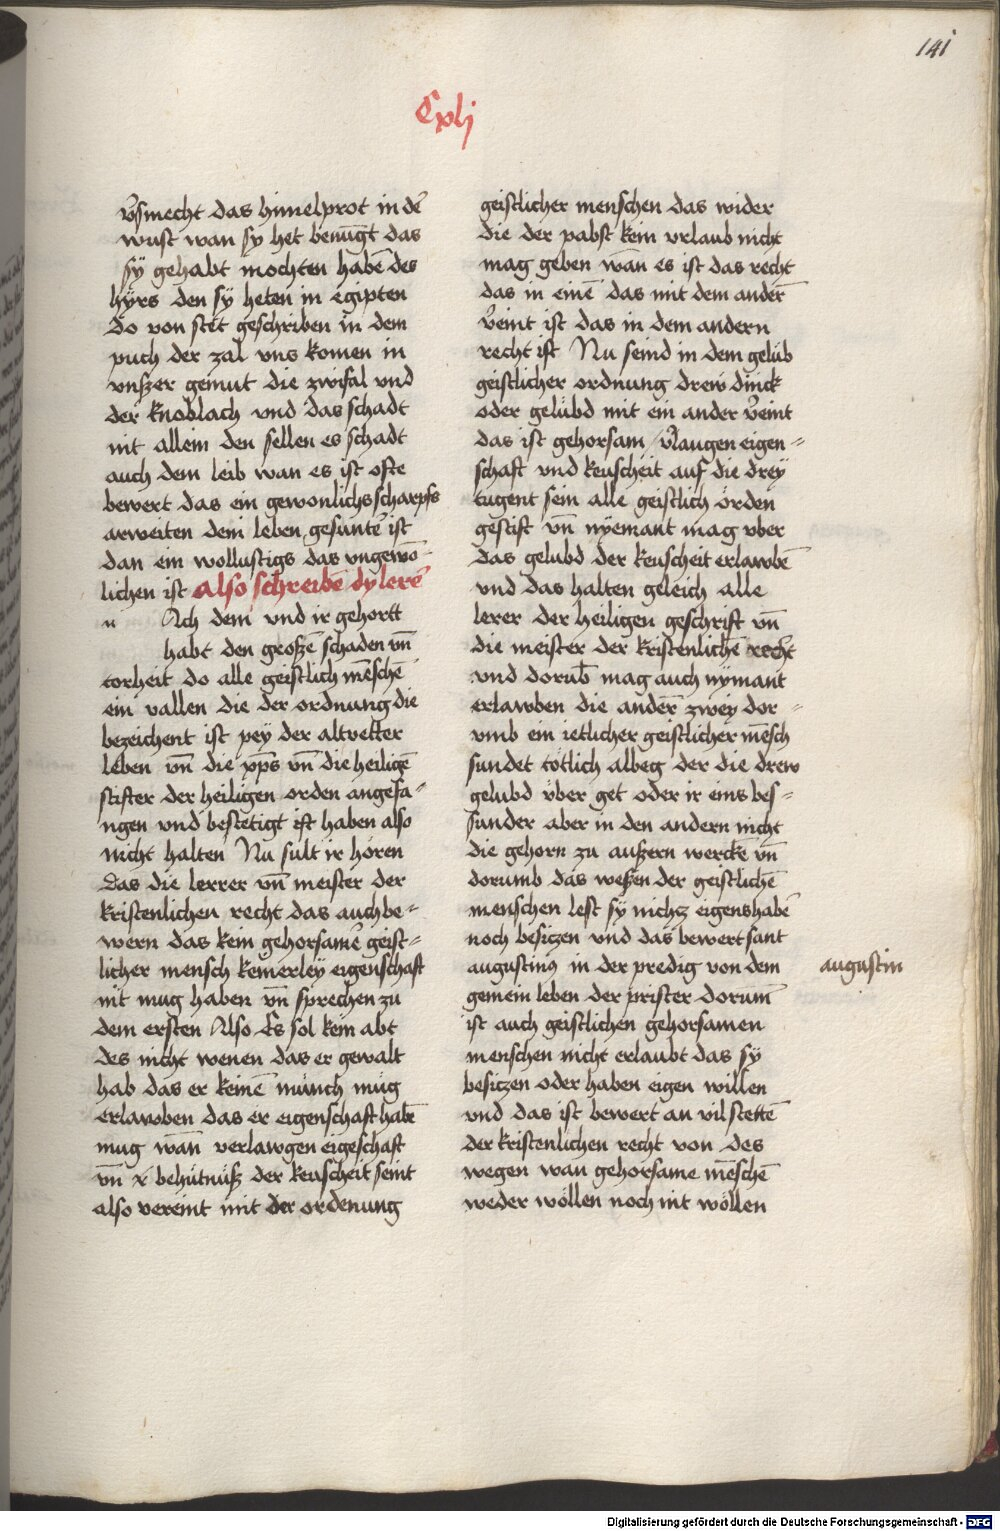 141
Cxlj
v̄smecht das himelprot in dē
wust wan sy het benügt das
sÿ gehabt mochten habē des
hÿrs den sÿ heten in egipten
do von stet geschriben in dem
puch der zal vns komen in
vnßer gemut die zwifal vnd
der knoblach vnd das schadt
nit allein den sellen es schadt
auch dem leib wan es ist ofte
bewert das ein gewonlichs scharpfs
arweiten dem leben gesuntē ist
dan ein wollustigs das vngewō-
lichen ist also schreibē dy lerē
n Ach dem vnd ir gehortt
habt den großē schaden vn̄
torheit do alle geistlich mēschē
ein vallen die der ordnung die
bezeichent ist pey der altvetter
leben vn̄ die pp̄s vn̄ die heiligē
stifter der heiligen orden angefa-
ngen vnd bestetigt ist haben also
nicht halten Nu sült ir hören
das die lerrer vn̄ meister der
kristenlichen recht das auch be-
wern das kein gehorsamē geist-
licher mensch keinerleÿ eigenschaft
nit mug haben vn̄ sprechen zu
dem ersten Also Es sol kein abt
des nicht wenen das er gewalt
hab das er keinē münch müg
erlawben das er eigenschaft habē
mug wan̄ verlawgen eigeschaft
vn̄ behütnüß der keuscheit seint
also vereint mit der ordenung
geistlicher menschen das wider
die der pabst kein vrlaub nicht
mag geben wan es ist das recht
das in einē das mit dem anderē
v̄eint ist das in dem andern
recht ist Nu seind in dem gelüb
geistlicher ordnung drew dinck
oder gelübd mit ein ander v̄eint
das ist gehorsam v̄laugen eigen-
schaft vnd keuscheit auf die dreÿ
tugent sein alle geistlich örden
gestift vn̄ nÿemant mag vber
das gelubd der keuscheit erlawbē
vnd das halten geleich alle
lerer der heiligen geschrift vn̄
die meister der kristenlichē recht
vnd dorub̄ mag auch nÿmant
erlawben die anderē zweÿ dor-
vmb ein ietlicher geistlicher mēsch
sundet tötlich albeg der die drew
gelubd über get oder ir eins bes-
sunder aber in den andern nicht
die gehorn zu außern werckē vn̄
dorumb das weßen der geistlichē
menschen lest sÿ nichcz eigens habē
noch besiczen vnd das bewert sant
augustinus in der predig von dem
gemein leben der prister dorum̄
ist auch geistlichen gehorsamen
menschen nicht erlaubt das sÿ
besitzen oder haben eigen willen
vnd das ist bewert an vil stettē
der kristenlichen recht von des
wegen wan gehorsame mēschē
weder wöllen noch nit wöllen
augustin
Digitalisierung gefördert durch die Deutsche Forschungsgemeinschaft - DFG